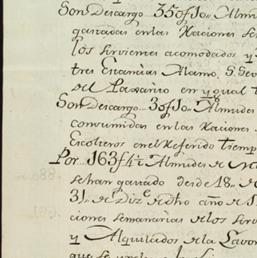 Son Descargo 35 of 10 Almud
gastadas en las Raciones se
los sirvientes acomodados y
tres Estancias Alamo, S. Ge
del Passatio en ygual t
Son Descargo 3 of 10 Almudes
consumidas en las Raciones
Escoteros en el Referido tiemp
Por 163 f 4½ Almudes de M
se han gastado desde 18 de
31 de Diz.e de dho año de 1
ciones semanarias de los sirv
y Alquilados de la Lavo